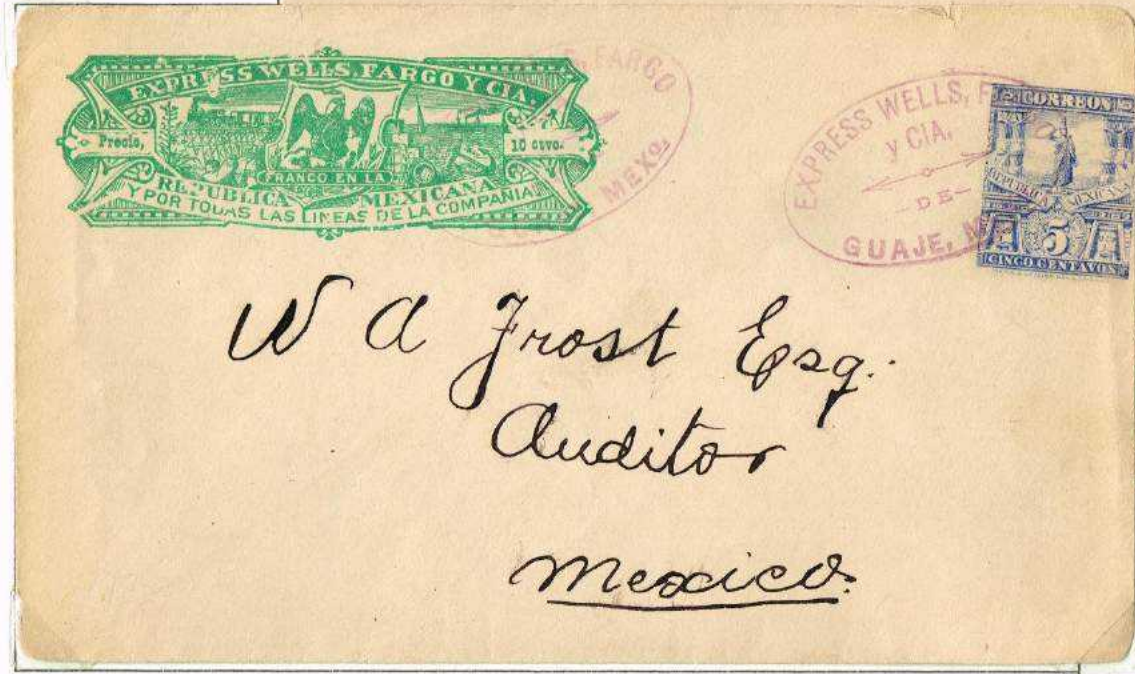 EXPRESS WELLS, FARGO Y CIA.
Precio, 10 ctvo.
FRANCO EN LA
REPUBLICA MEXICANA
Y POR TODAS LAS LINEAS DE LA COMPAÑIA
S, FARGO
MEXO.
EXPRESS WELLS, F
y CIA.
DE
GUAJE, M
CORREOS
REPUBLICA MEXICANA
5
CINCO CENTAVOS
W A Frost Esq.
Auditor
Mexico.